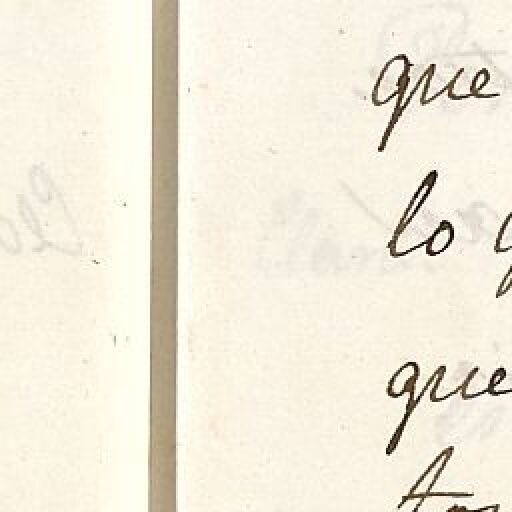 que
lo
que